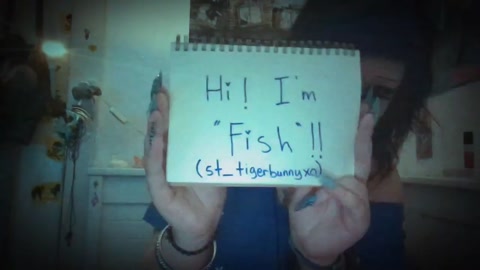 Hi! I'm
"Fish"!!
(st_tigerbunnyxo)